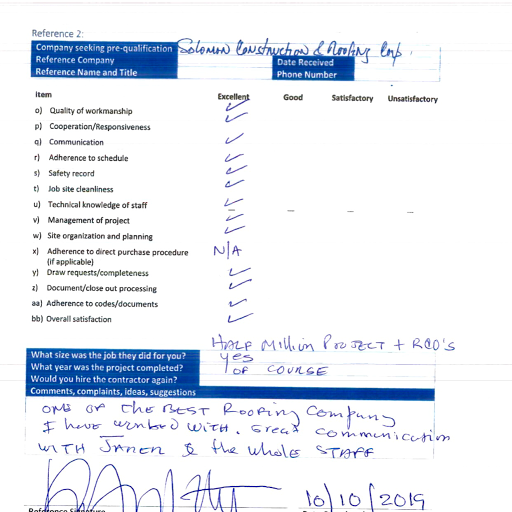 Reference 2:
Company seeking pre-qualification Solomon Construction & Roofing Corp.
Reference Company Date Received
Reference Name and Title Phone Number
Item Excellent Good Satisfactory Unsatisfactory
o) Quality of workmanship ✓
p) Cooperation/Responsiveness ✓
q) Communication ✓
r) Adherence to schedule ✓
s) Safety record ✓
t) Job site cleanliness ✓
u) Technical knowledge of staff ✓
v) Management of project ✓
w) Site organization and planning ✓
x) Adherence to direct purchase procedure N/A
(if applicable)
y) Draw requests/completeness ✓
z) Document/close out processing ✓
aa) Adherence to codes/documents ✓
bb) Overall satisfaction ✓
HALF Million PROJECT + RCO'S
What size was the job they did for you? yes
What year was the project completed? OF COURSE
Would you hire the contractor again?
Comments, complaints, ideas, suggestions
ONE OF the BEST ROOFING Company
I have worked WITH. great communication
WITH & the whole STAFF
10/10/2019